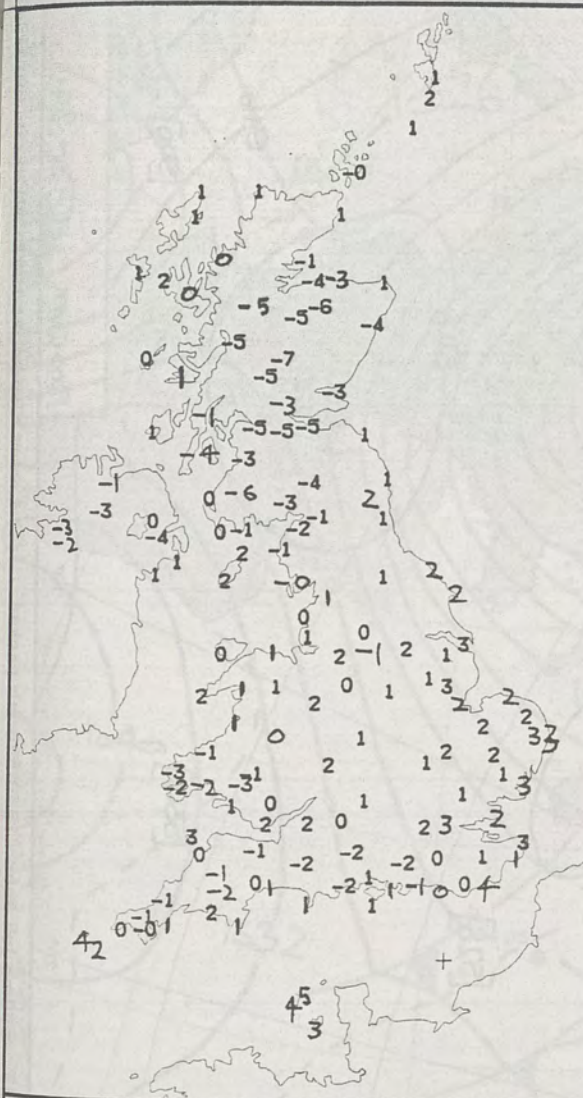 1
2
1
-0
1 1
1 1
0 -1
1 2 -4 -3 1
0 -5 -6
-5 -4
-5
0 -7
1 -5
-3 -3
-1
1 -5 -5 -5 1
-4 -3
-1 -4 1
0 -6 -3 2
-3 0 -1 1
-3 -4 0 -1 -2
-2 2 -1
1 1 2 -0 1 2
1 2
0
1 0
0 1 2 -1 2 1 3
2 1 1 2 0 1 1 3 2 2
1 2 2
0 1 3 2
-1 2 1 2 2 3
-3 -3 -1 1 3
-2 -2 1 0 1 1
2 2 0 2 3 2
3 3
0 -1 -2 -2 -2 0 1 1
-1 -2 0 1 -2 1 1 -1 0 0 4
-1 2 1 1
0 -1 -0 1 1
4 2
+
4 5
3